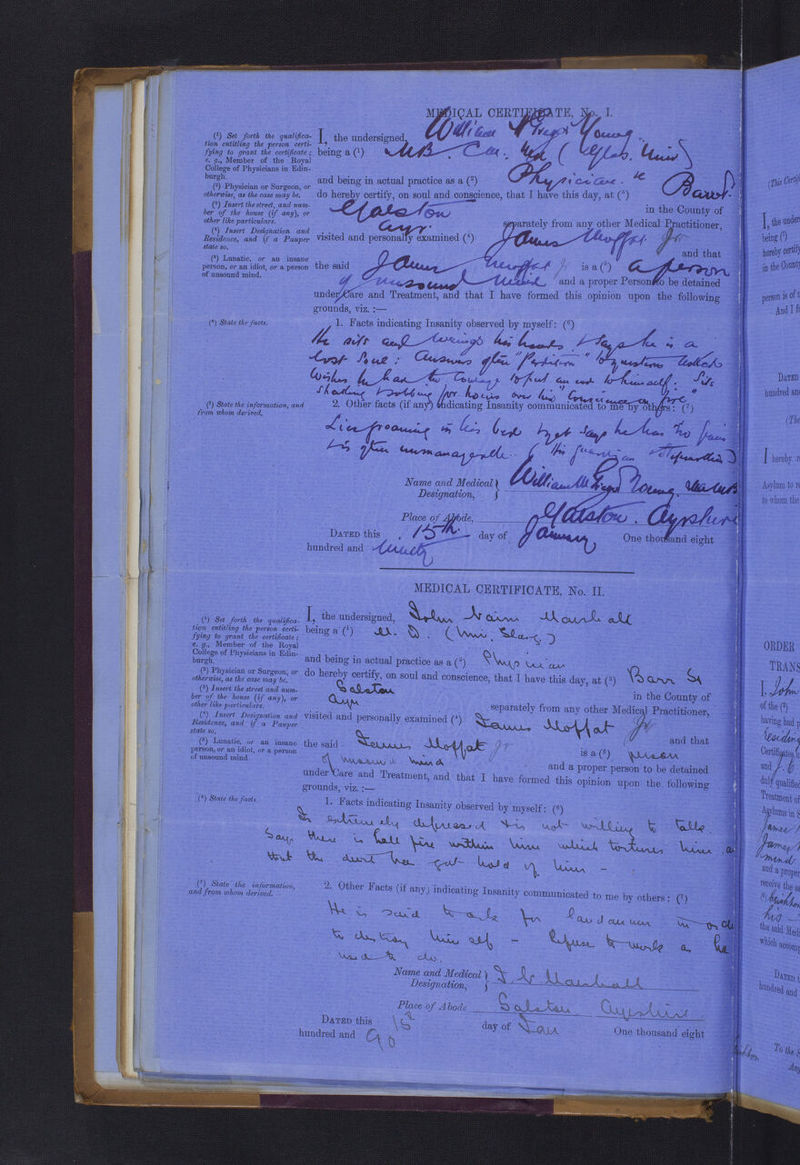 MEDICAL CERTIFICATE, No. I.
(¹) Set forth the qualifica-
tion entitling the person certi-
fying to grant the certificate;
e. g., Member of the Royal
College of Physicians in Edin-
burgh.
(²) Physician or Surgeon, or
otherwise, as the case may be.
(³) Insert the street, and num-
ber of the house (if any), or
other like particulars.
(⁴) Insert Designation and
Residence, and if a Pauper
state so.
(⁵) Lunatic, or an insane
person, or an idiot, or a person
of unsound mind.
I, the undersigned, William McGregor Young
being a (¹) M.B. C.M. (Glas. Univ)
and being in actual practice as a (²) Physician
do hereby certify, on soul and conscience, that I have this day, at (³) Barr St
Galston in the County of
Ayr separately from any other Medical Practitioner,
visited and personally examined (⁴) James Moffat Jr
and that
the said James Moffat Jr is a (⁵) a person
of unsound mind and a proper Person to be detained
under Care and Treatment, and that I have formed this opinion upon the following
grounds, viz. :—
(⁶) State the facts.
1. Facts indicating Insanity observed by myself: (⁶)
He sits and wrings his hands & says he is a
lost Soul: answers often "Perdition" to questions asked
Wishes he had the courage to put an end to himself: Sits
& sobbing for hours over his "Conscience on fire"
(⁷) State the information, and
from whom derived.
2. Other facts (if any) indicating Insanity communicated to me by others: (⁷)
Lies groaning in his bed & yet says he has no pain
& is often unmanageable.
Name and Medical
Designation, William McGregor Young. M.A. M.B
Place of Abode, Galston. Ayrshire
DATED this 15th day of January One thousand eight
hundred and ninety
MEDICAL CERTIFICATE, No. II.
(¹) Set forth the qualifica-
tion entitling the person certi-
fying to grant the certificate;
e. g., Member of the Royal
College of Physicians in Edin-
burgh.
(²) Physician or Surgeon, or
otherwise, as the case may be.
(³) Insert the street and num-
ber of the house (if any), or
other like particulars.
(⁴) Insert Designation and
Residence, and if a Pauper
state so.
(⁵) Lunatic, or an insane
person, or an idiot, or a person
of unsound mind.
I, the undersigned, John Nairn Marshall
being a (¹) M. D. (Univ. Glasg)
and being in actual practice as a (²) Physician
do hereby certify, on soul and conscience, that I have this day, at (³) Barr St
Galston in the County of
Ayr separately from any other Medical Practitioner,
visited and personally examined (⁴) James Moffat Jr
and that
the said James Moffat Jr is a (⁵) person
of unsound mind and a proper person to be detained
under Care and Treatment, and that I have formed this opinion upon the following
grounds, viz. :—
(⁶) State the facts.
1. Facts indicating Insanity observed by myself: (⁶)
Is extremely depressed & is not willing to talk
Says there is hell fire within him which tortures him a
that the devil has got hold of him -
(⁷) State the information,
and from whom derived.
2. Other Facts (if any) indicating Insanity communicated to me by others: (⁷)
He is said to ask for laudanum in orde
to destroy himself - Refuses to work as he
used to do.
Name and Medical
Designation, J N Marshall
Place of Abode Galston Ayrshire
DATED this 15th day of Jan One thousand eight
hundred and 90
(This Certi
I, the under
being (¹)
hereby certify
in the County
person is of
And I fu
DATED
hundred an
(The
I hereby
Asylum to re
to whom the
ORDER
TRANS
I, John
of the (²)
having had p
residing
Certificates
and J. C
duly qualified
Treatment of
Asylums in S
James
mind
and a proper
receive the sa
his
the said Medi
which accomp
DATED
hundred and
To the